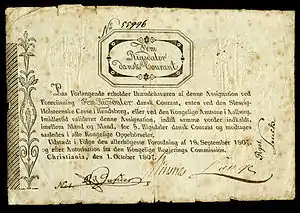 No 55996
Fem
Rigsdaler
dansk Courant.
Paa Forlangende erholder Ihændehaveren af denne Assignation ved
Foreviisning Fem Rigsdaler dansk Courant, enten ved den Slesvig-
Holsteenske Casse i Rendsborg, eller ved den Kongelige Amtstue i Aalborg.
Imidlertid validerer denne Assignation, indtil samme vorder indfriet,
imellem Mand og Mand, for 5 Rigsdaler dansk Courant og modtages
saaledes i alle Kongelige Oppebørseler.
Udstædt i Følge den allerhøieste Forordning af 18. September 1807,
og efter Autorisation fra den Kongelige Regjerings Commission.
Christiania, den 1. October 1807.
Not.